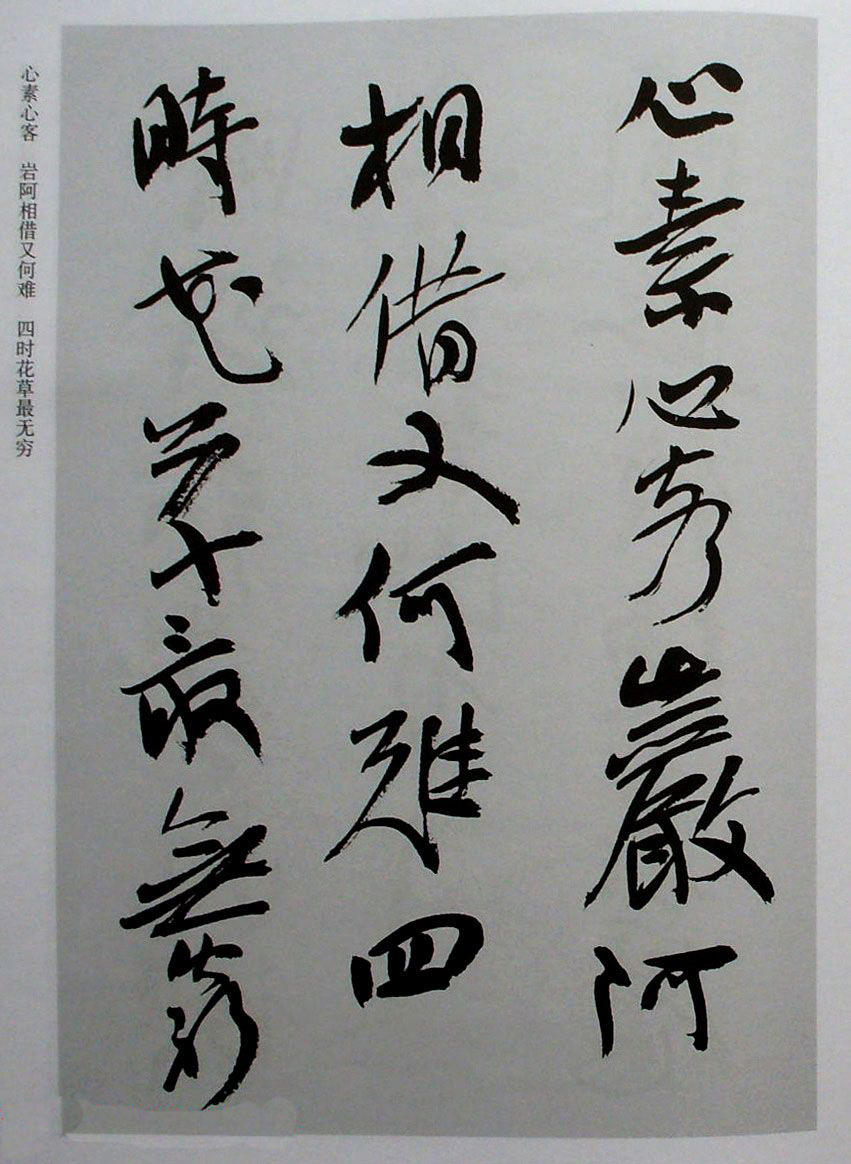 心素心巖阿
相借又何難四
時花草最無窮
心素心客　岩阿相借又何难　四时花草最无穷